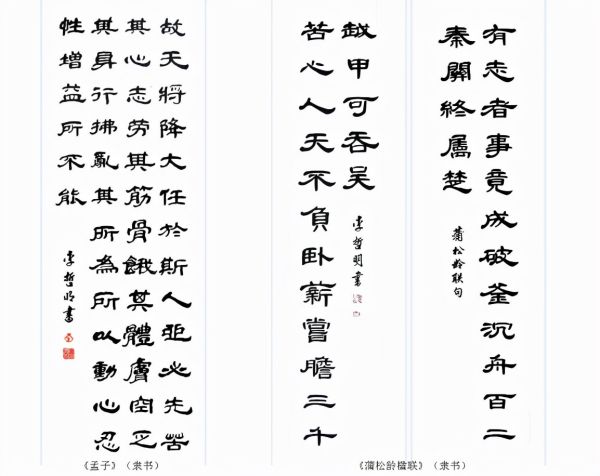 有志者事竟成破釜沉舟百二
秦關終屬楚
蒲松龄联句
苦心人天不負卧薪嘗膽三千
越甲可吞吴
李哲明書
故天將降大任於斯人也必先苦
其心志劳其筋骨餓其體膚空乏
其身行拂亂其所為所以動心忍
性增益所不能
李哲明書
《孟子》（隶书）
《蒲松龄楹联》（隶书）